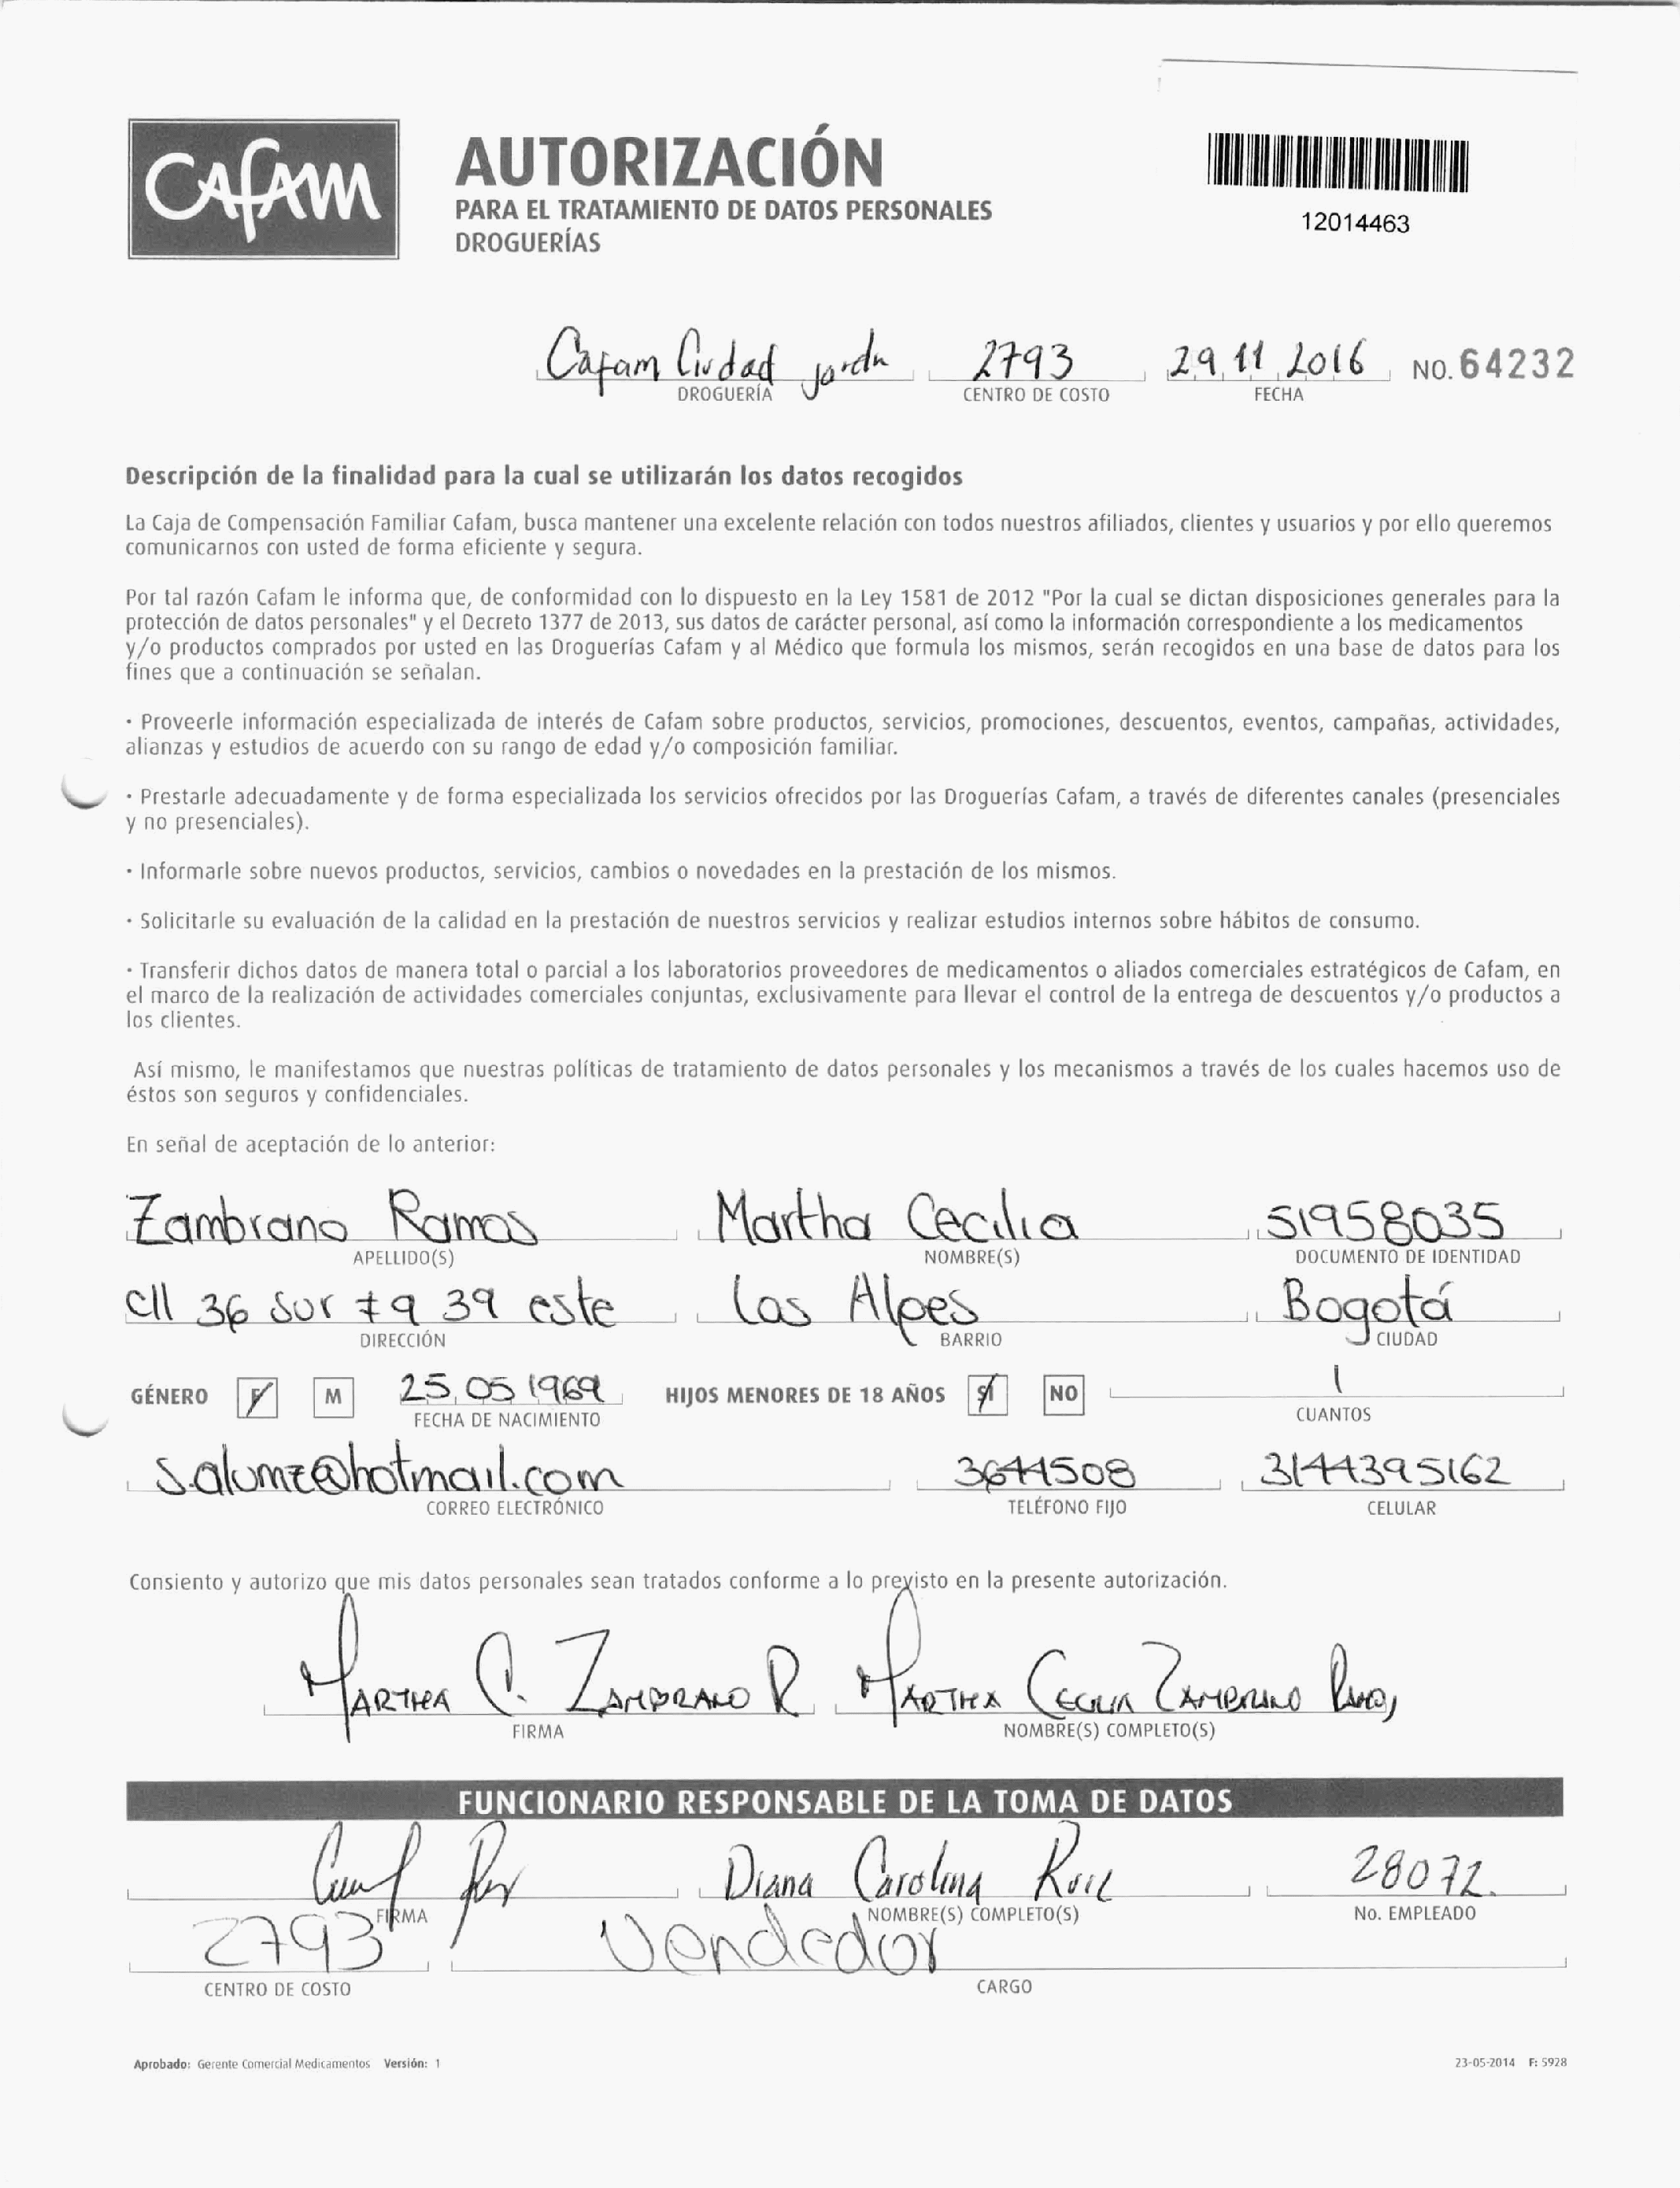 CAFAM
AUTORIZACIÓN
PARA EL TRATAMIENTO DE DATOS PERSONALES
DROGUERÍAS
12014463
Cafam Ciudad jardn 2793 29 11 2016 NO. 64232
DROGUERÍA CENTRO DE COSTO FECHA
Descripción de la finalidad para la cual se utilizarán los datos recogidos
La Caja de Compensación Familiar Cafam, busca mantener una excelente relación con todos nuestros afiliados, clientes y usuarios y por ello queremos
comunicarnos con usted de forma eficiente y segura.
Por tal razón Cafam le informa que, de conformidad con lo dispuesto en la Ley 1581 de 2012 "Por la cual se dictan disposiciones generales para la
protección de datos personales" y el Decreto 1377 de 2013, sus datos de carácter personal, así como la información correspondiente a los medicamentos
y/o productos comprados por usted en las Droguerías Cafam y al Médico que formula los mismos, serán recogidos en una base de datos para los
fines que a continuación se señalan.
· Proveerle información especializada de interés de Cafam sobre productos, servicios, promociones, descuentos, eventos, campañas, actividades,
alianzas y estudios de acuerdo con su rango de edad y/o composición familiar.
· Prestarle adecuadamente y de forma especializada los servicios ofrecidos por las Droguerías Cafam, a través de diferentes canales (presenciales
y no presenciales).
· Informarle sobre nuevos productos, servicios, cambios o novedades en la prestación de los mismos.
· Solicitarle su evaluación de la calidad en la prestación de nuestros servicios y realizar estudios internos sobre hábitos de consumo.
· Transferir dichos datos de manera total o parcial a los laboratorios proveedores de medicamentos o aliados comerciales estratégicos de Cafam, en
el marco de la realización de actividades comerciales conjuntas, exclusivamente para llevar el control de la entrega de descuentos y/o productos a
los clientes.
Así mismo, le manifestamos que nuestras políticas de tratamiento de datos personales y los mecanismos a través de los cuales hacemos uso de
éstos son seguros y confidenciales.
En señal de aceptación de lo anterior:
Zambrano Ramos Martha Cecilia 51958035
APELLIDO(S) NOMBRE(S) DOCUMENTO DE IDENTIDAD
Cll 36 Sur 79 39 este Los Alpes Bogotá
DIRECCIÓN BARRIO CIUDAD
GÉNERO F M 25 05 1969 HIJOS MENORES DE 18 AÑOS SI NO 1
FECHA DE NACIMIENTO CUANTOS
salumz@hotmail.com 3644508 3144395162
CORREO ELECTRÓNICO TELÉFONO FIJO CELULAR
Consiento y autorizo que mis datos personales sean tratados conforme a lo previsto en la presente autorización.
MARTHA C. ZAMBRANO R MARTHA CECILIA ZAMBRANO RAMOS
FIRMA NOMBRE(S) COMPLETO(S)
FUNCIONARIO RESPONSABLE DE LA TOMA DE DATOS
Diana Carolina Ruiz 28072.
FIRMA NOMBRE(S) COMPLETO(S) No. EMPLEADO
2793 Vendedor
CENTRO DE COSTO CARGO
Aprobado: Gerente Comercial Medicamentos Versión: 1 23-05-2014 F: 5928